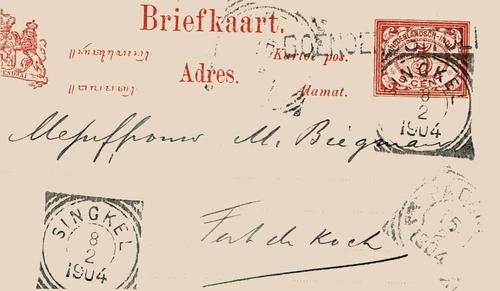 Briefkaart.
GOENOENGSITOLI
NEDERLANDSCH-INDIË
CENT
Kartoe pos.
Adres.
Alamat.
SINGKEL
8
2
1904
Mejuffrouw M. Biegman
SINGKEL
8
2
1904
15
2
1904
Fort de Kock